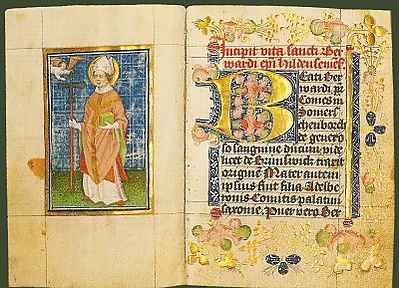 Incipit vita sancti Ber
wardi epi hildensemēs
Beati Ber
wardi
Comes in
Somers
chenborch
de genero
so sanguine ducum vide
licet de Brunswick traxit
origine Mater autem
ipsius fuit filia Adelbe
ronis Comitis palatini
saxonie. Puer vero Ber